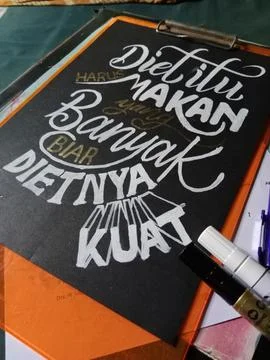 Diet itu
HARUS MAKAN
yang
Banyak
BIAR
DIETNYA
KUAT